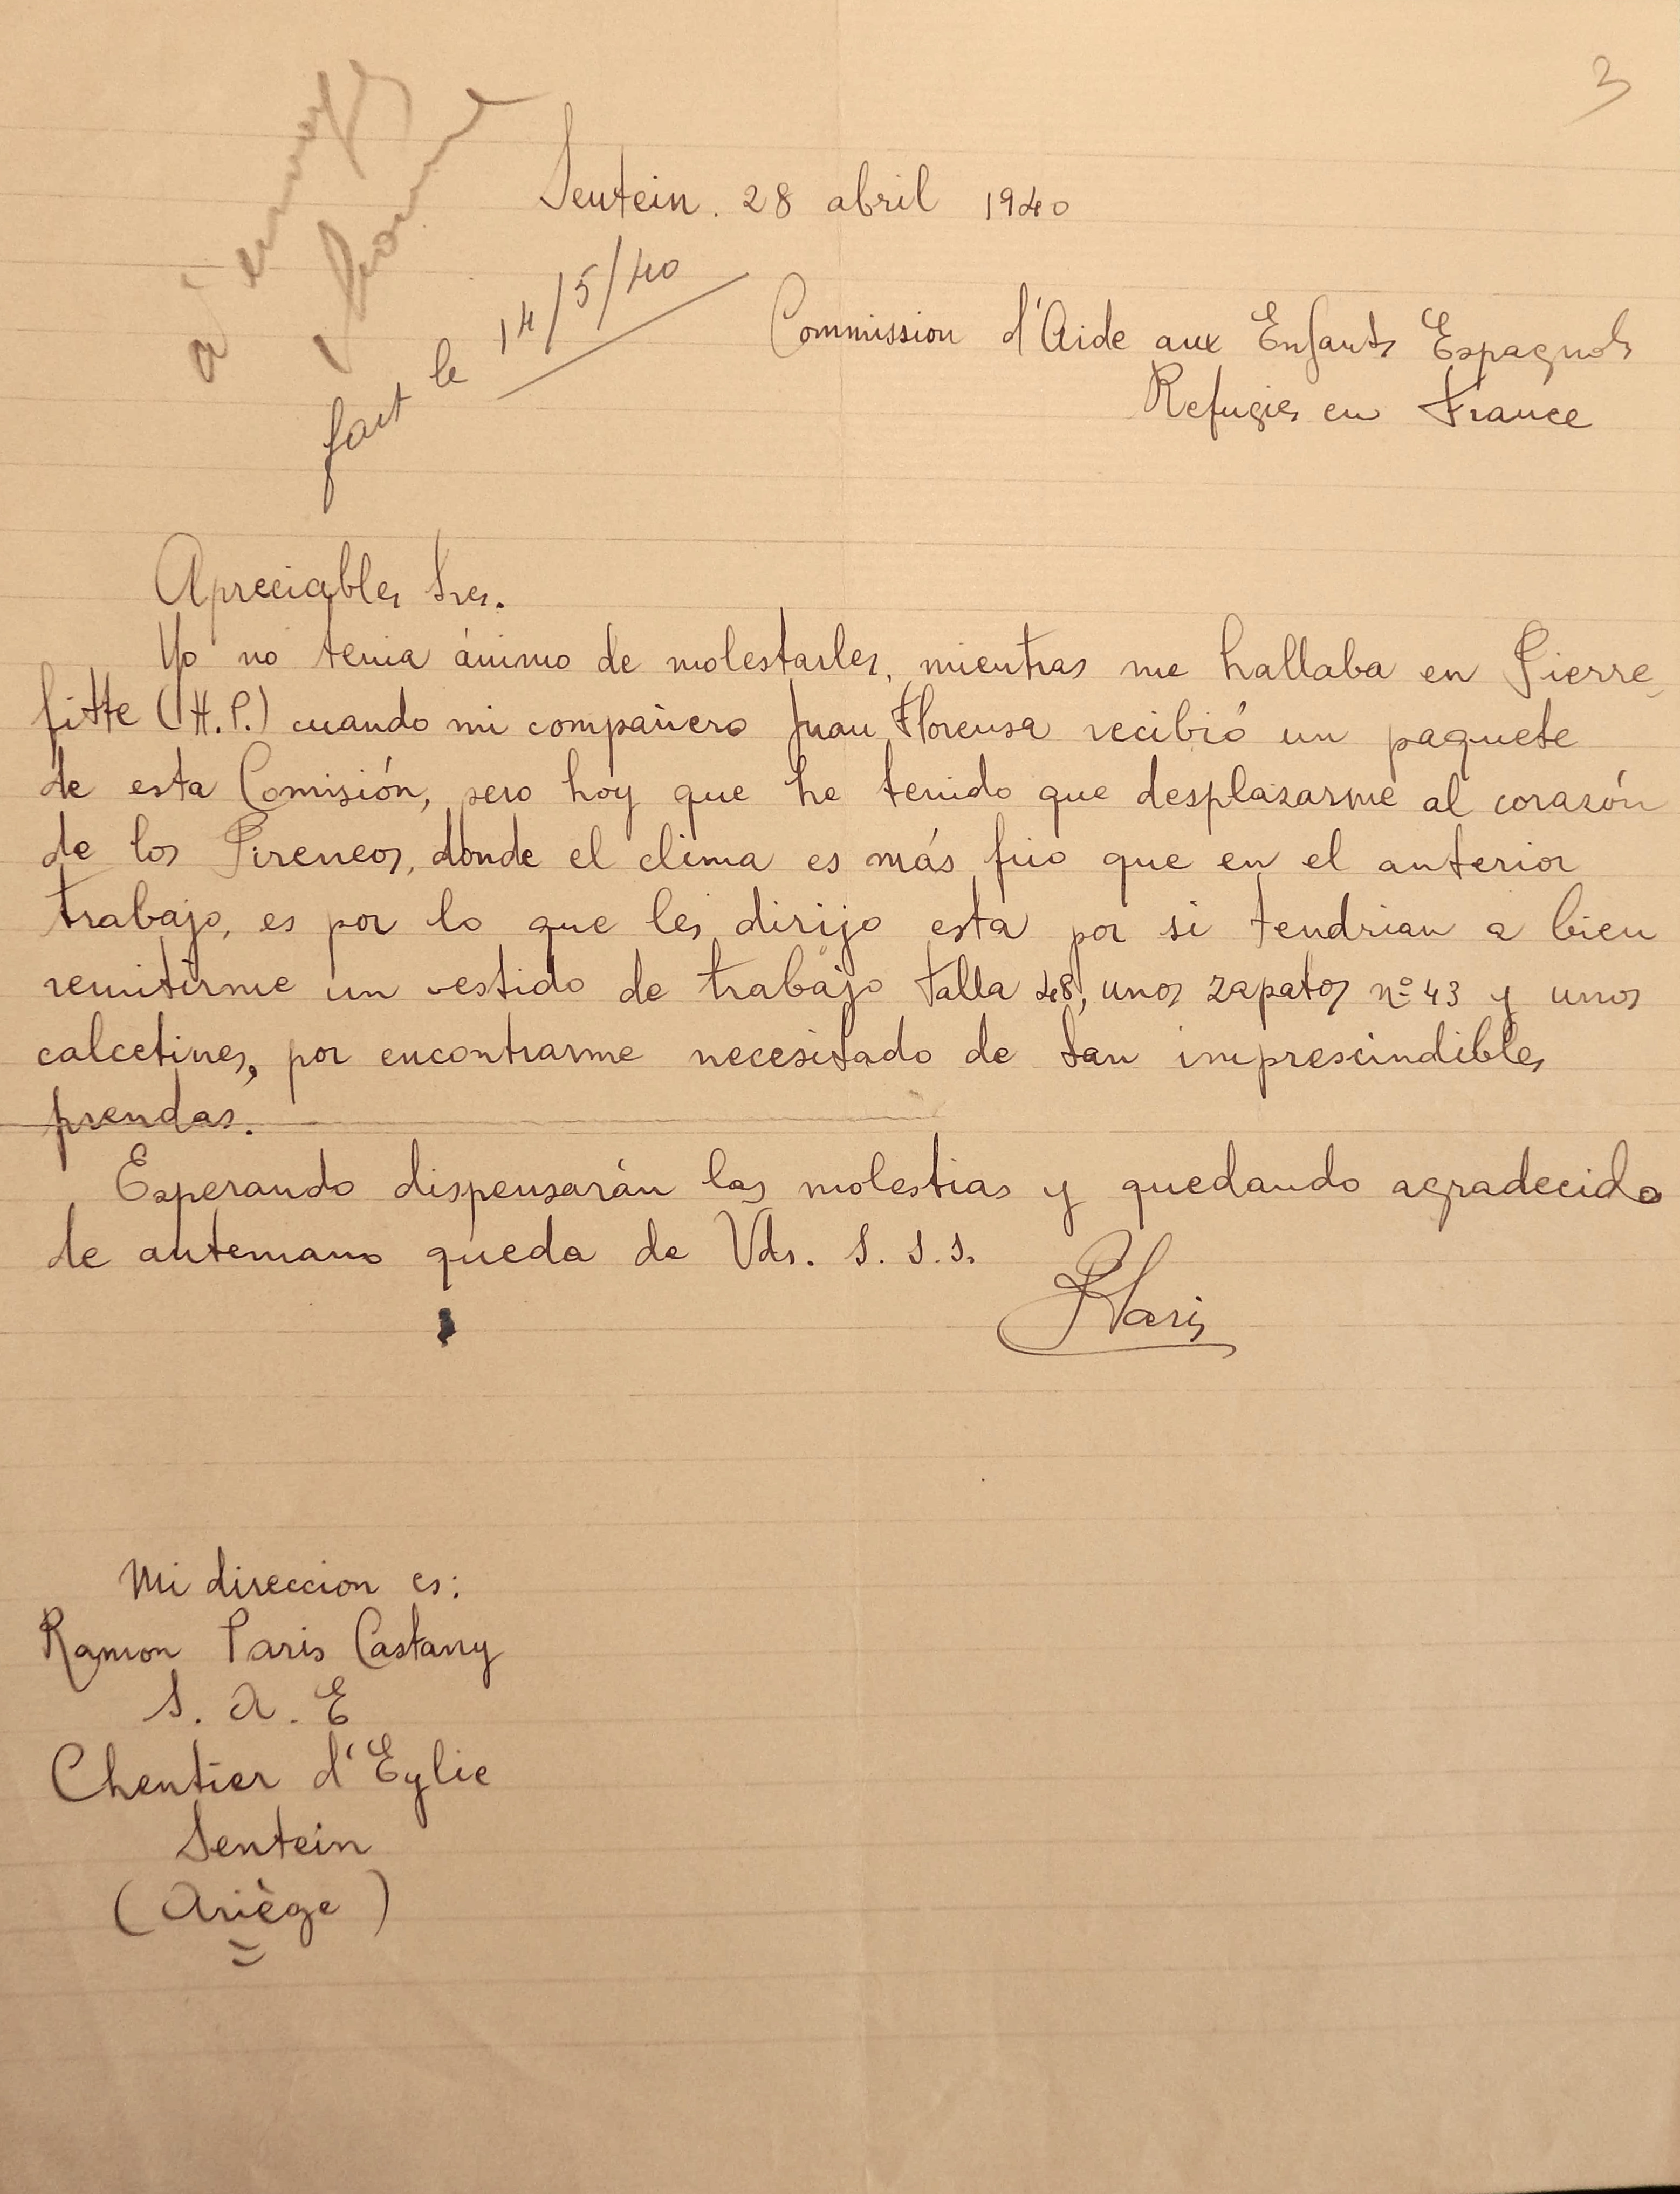 3
Sentein. 28 abril 1940
fait le 14/5/40
Commission d'Aide aux Enfants Espagnols
Refugies en France
Apreciables Sres.
Yo no tenia ánimo de molestarles, mientras me hallaba en Pierre-
fitte (H.P.) cuando mi compañero Juan Florensa recibió un paquete
de esta Comisión, pero hoy que he tenido que desplazarme al corazón
de los Pireneos, donde el clima es más frio que en el anterior
trabajo, es por lo que les dirijo esta por si tendrian a bien
remitirme un vestido de trabajo talla 48, unos zapatos nº 43 y unos
calcetines, por encontrarme necesitado de tan imprescindibles
prendas.
Esperando dispensarán las molestias y quedando agradecido
de antemano queda de Vds. S. S. S.
RParis
Mi direccion es:
Ramon Paris Castany
S. A. E
Chentier d'Eylie
Sentein
(Ariège)